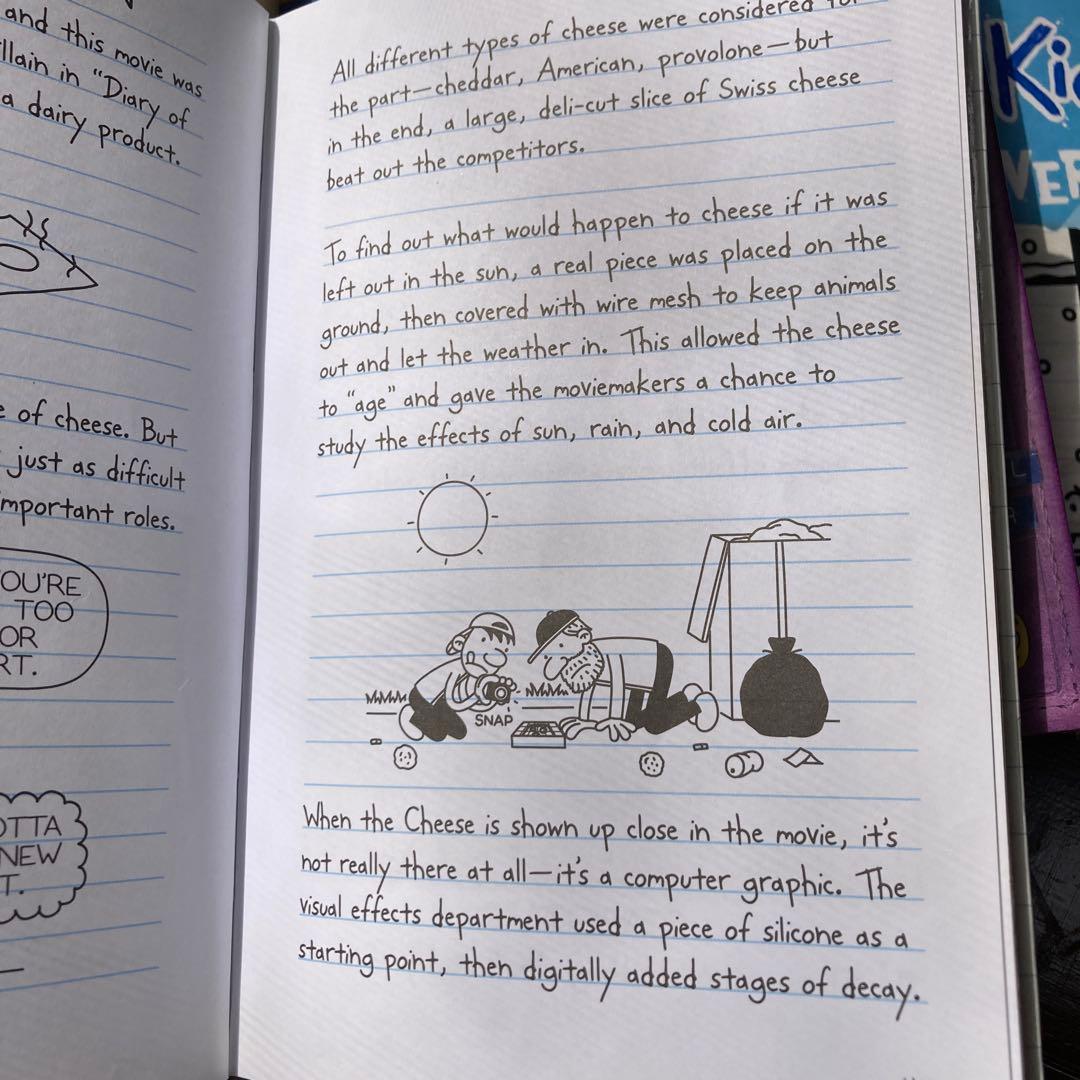 and this movie was
llain in "Diary of
a dairy product.
e of cheese. But
just as difficult
mportant roles.
OU'RE
TOO
OR
RT.
OTTA
NEW
T.
All different types of cheese were considered for
the part—cheddar, American, provolone—but
in the end, a large, deli-cut slice of Swiss cheese
beat out the competitors.
To find out what would happen to cheese if it was
left out in the sun, a real piece was placed on the
ground, then covered with wire mesh to keep animals
out and let the weather in. This allowed the cheese
to "age" and gave the moviemakers a chance to
study the effects of sun, rain, and cold air.
SNAP
When the Cheese is shown up close in the movie, it's
not really there at all—it's a computer graphic. The
visual effects department used a piece of silicone as a
starting point, then digitally added stages of decay.
Ki
VER